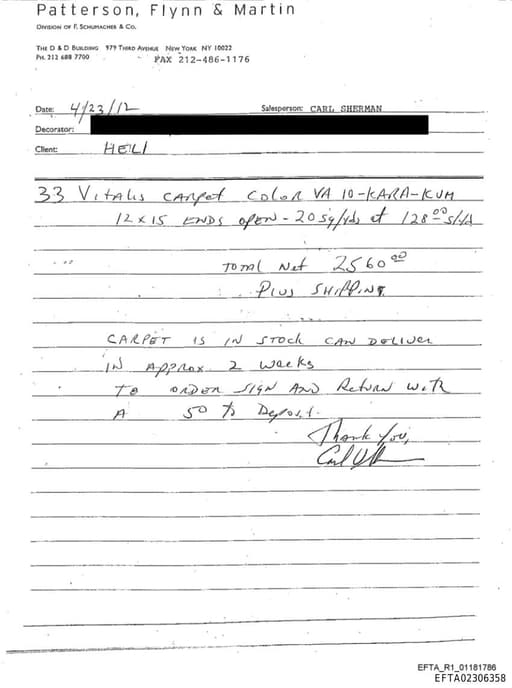 Patterson, Flynn & Martin
DIVISION OF F. SCHUMACHER & CO.
THE D & D BUILDING 979 THIRD AVENUE NEW YORK NY 10022
PH. 212 688 7700 FAX 212-486-1176
Date: 4/23/12 Salesperson: CARL SHERMAN
Decorator:
Client: HELI
33 Vitalis CARPET COLOR VA 10-KARA-KUM
12 x 15 ENDS OPEN - 20 sq/yds at 128.00 s/yd
TOTAL Net 2560.00
Plus SHIPPING
CARPET IS IN STOCK CAN DELIVER
IN APPROX. 2 weeks
TO ORDER SIGN AND Return with
A 50 % Deposit.
Thank You,
Carl
EFTA_R1_01181786
EFTA02306358